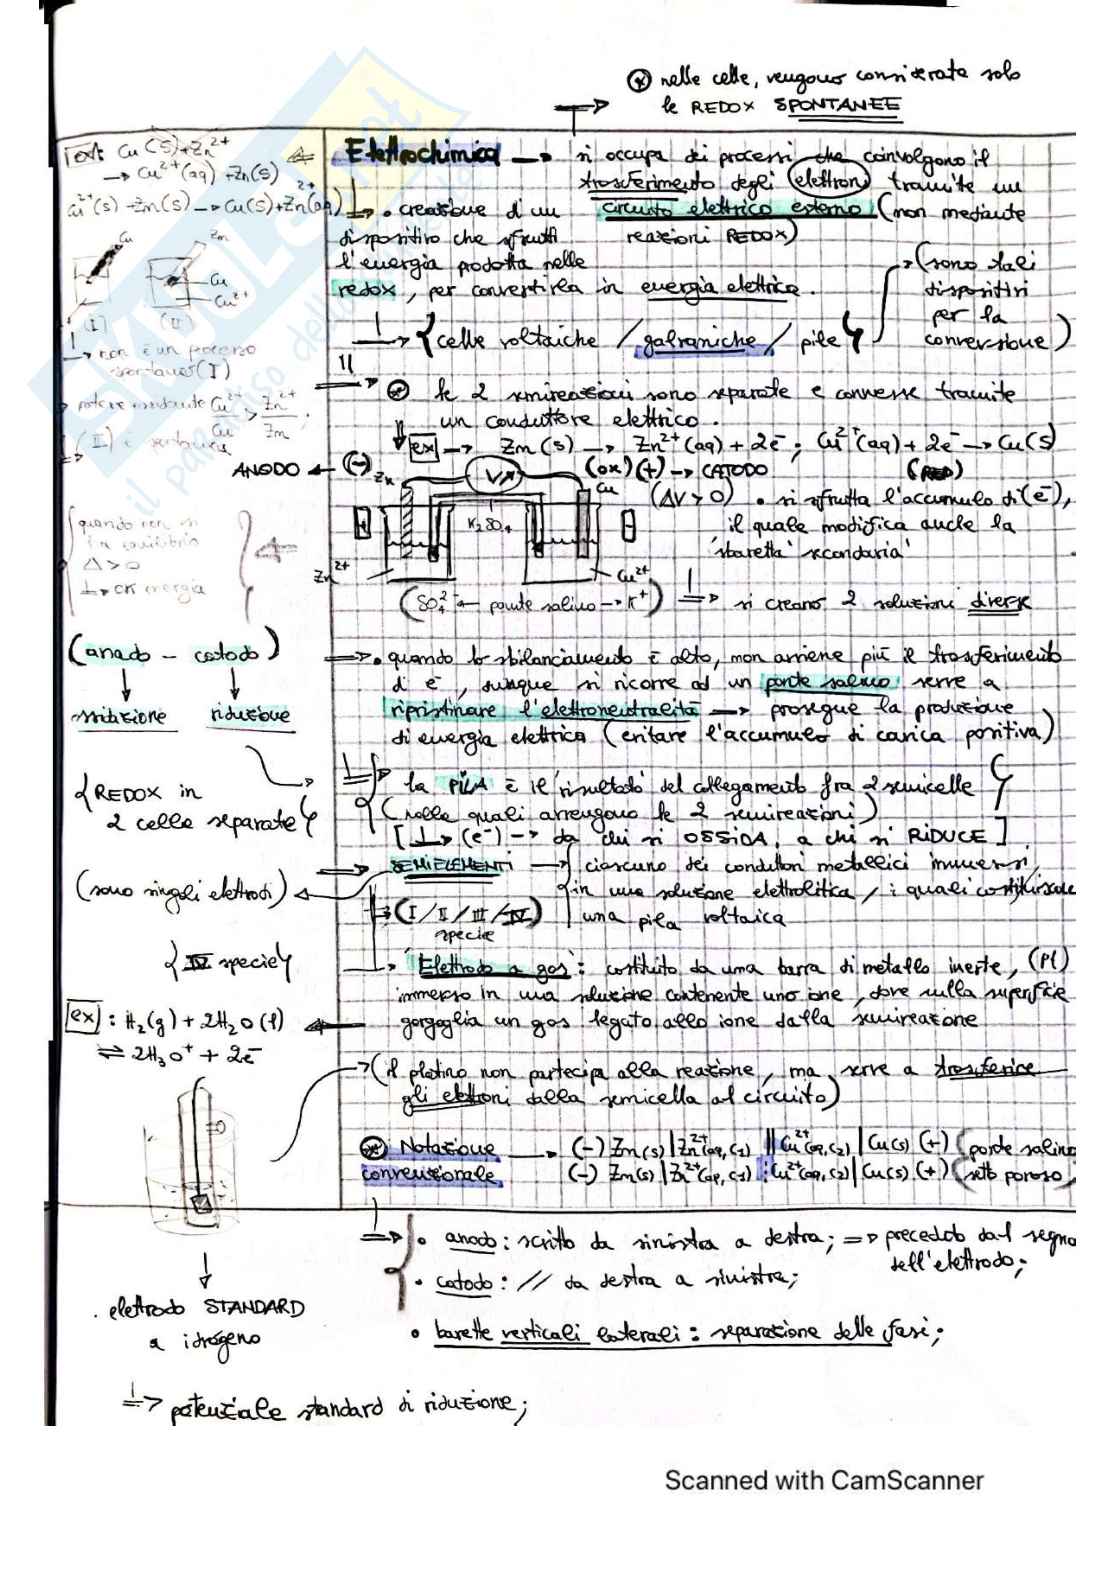 ⊛ nelle celle, vengono considerate solo
le REDOX SPONTANEE
Cu(s) + Zn²⁺
→ Cu²⁺(aq) + Zn(s)
Cu²⁺(s) + Zn(s) → Cu(s) + Zn²⁺(aq)
Cu
Zn
Cu
Cu²⁺
(I) (II)
→ non è un processo
spontaneo (I)
potere ossidante Cu²⁺/Cu > Zn²⁺/Zn
(II) è
quando non si
è in equilibrio
Δ>0
→ OK energia
(anodo - catodo)
ossidazione riduzione
{REDOX in
2 celle separate}
(sono singoli elettrodi)
{IV specie}
ex: H₂(g) + 2H₂O(l)
⇌ 2H₃O⁺ + 2e⁻
Elettrochimica → si occupa dei processi che coinvolgono il
trasferimento degli elettroni tramite un
circuito elettrico esterno (non mediante
reazioni REDOX)
• creazione di un
dispositivo che sfrutti
l'energia prodotta nelle
redox, per convertirla in energia elettrica.
→ (sono tali
dispositivi
per la
conversione)
→ {celle voltaiche / galvaniche / pile}
⊛ le 2 semireazioni sono separate e connesse tramite
un conduttore elettrico.
ex → Zn(s) → Zn²⁺(aq) + 2e⁻; Cu²⁺(aq) + 2e⁻ → Cu(s)
ANODO ← (-) Zn (ox) (+) → CATODO (RED)
V
Cu
(ΔV > 0) • si sfrutta l'accumulo di (e⁻),
il quale modifica anche la
'sbaretta' secondaria'
K₂SO₄
Zn²⁺ Cu²⁺
(SO₄²⁻ ← ponte salino → K⁺) ⇒ si creano 2 soluzioni diverse
⇒ • quando lo sbilanciamento è alto, non avviene più il trasferimento
di e⁻, dunque si ricorre ad un ponte salino serve a
ripristinare l'elettroneutralità → prosegue la produzione
di energia elettrica (evitare l'accumulo di carica positiva)
la PILA è il 'risultato' del collegamento fra 2 semicelle
(nelle quali avvengono le 2 semireazioni)
[→ (e⁻) → da chi si OSSIDA, a chi si RIDUCE]
SEMIELEMENTI → ciascuno dei conduttori metallici immersi
in una soluzione elettrolitica, i quali costituiscono
una pila voltaica
(I/II/III/IV)
specie
'Elettrodo a gas': costituito da una barra di metallo inerte, (Pt)
immerso in una soluzione contenente uno ione, dove sulla superficie
gorgoglia un gas legato allo ione dalla semireazione
→ (il platino non partecipa alla reazione, ma serve a trasferire
gli elettroni dalla semicella al circuito)
⊛ Notazione → (-) Zn(s) | Zn²⁺(aq, c₁) || Cu²⁺(aq, c₂) | Cu(s) (+) (ponte salino
convenzionale (-) Zn(s) | Zn²⁺(aq, c₁) ⋮ Cu²⁺(aq, c₂) | Cu(s) (+) (setto poroso)
• anodo: scritto da sinistra a destra; ⇒ preceduto dal segno
dell'elettrodo;
• catodo: // da destra a sinistra;
• barette verticali laterali: separazione delle fasi;
• elettrodo STANDARD
a idrogeno
⇒ potenziale standard di riduzione;
Scanned with CamScanner